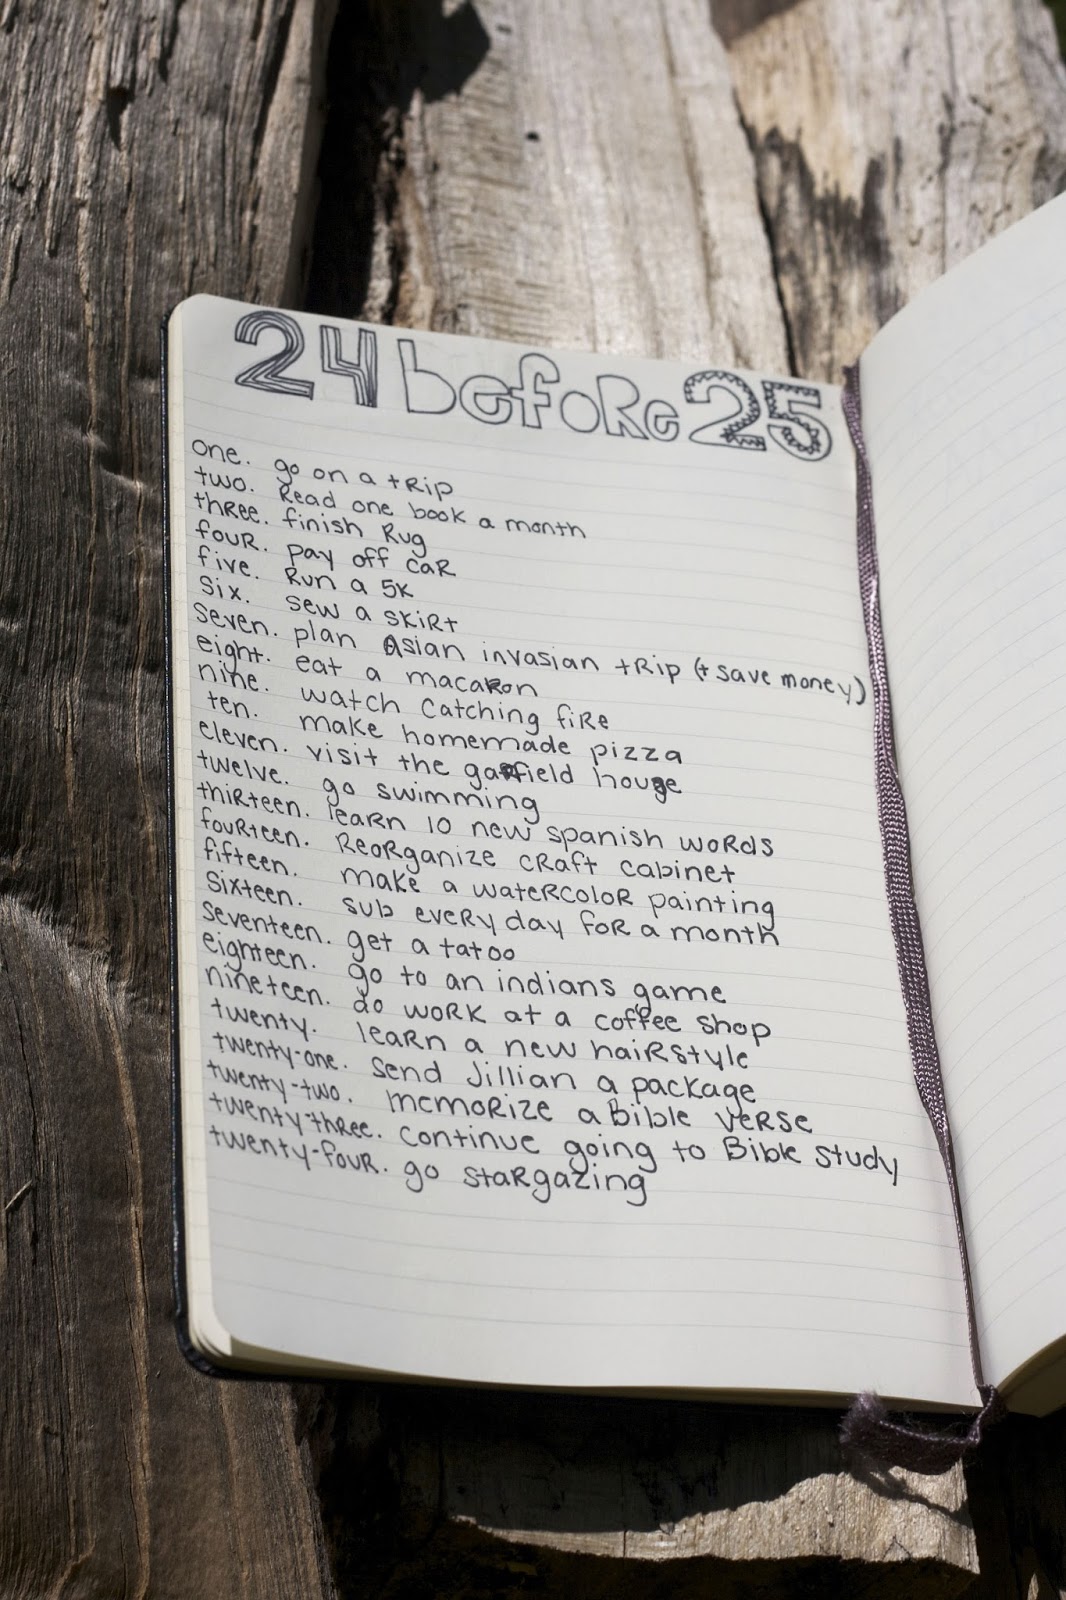 24 before 25
one. go on a trip
two. Read one book a month
three. finish Rug
four. pay off car
five. Run a 5k
six. sew a skirt
seven. plan Asian invasian trip (+ save money)
eight. eat a macaron
nine. watch Catching fire
ten. make homemade pizza
eleven. visit the garfield house
twelve. go swimming
thirteen. learn 10 new spanish words
fourteen. Reorganize craft cabinet
fifteen. make a watercolor painting
sixteen. sub every day for a month
seventeen. get a tatoo
eighteen. go to an indians game
nineteen. do work at a coffee shop
twenty. learn a new hairstyle
twenty-one. send Jillian a package
twenty-two. memorize a Bible verse
twenty-three. continue going to Bible study
twenty-four. go stargazing